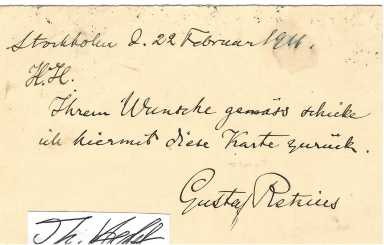 Stockholm d. 22 Februar 1911.
H. H.
Ihrem Wunsche gemäss schicke
ich hiermit diese Karte zurück.
Gustaf Retzius
Th.